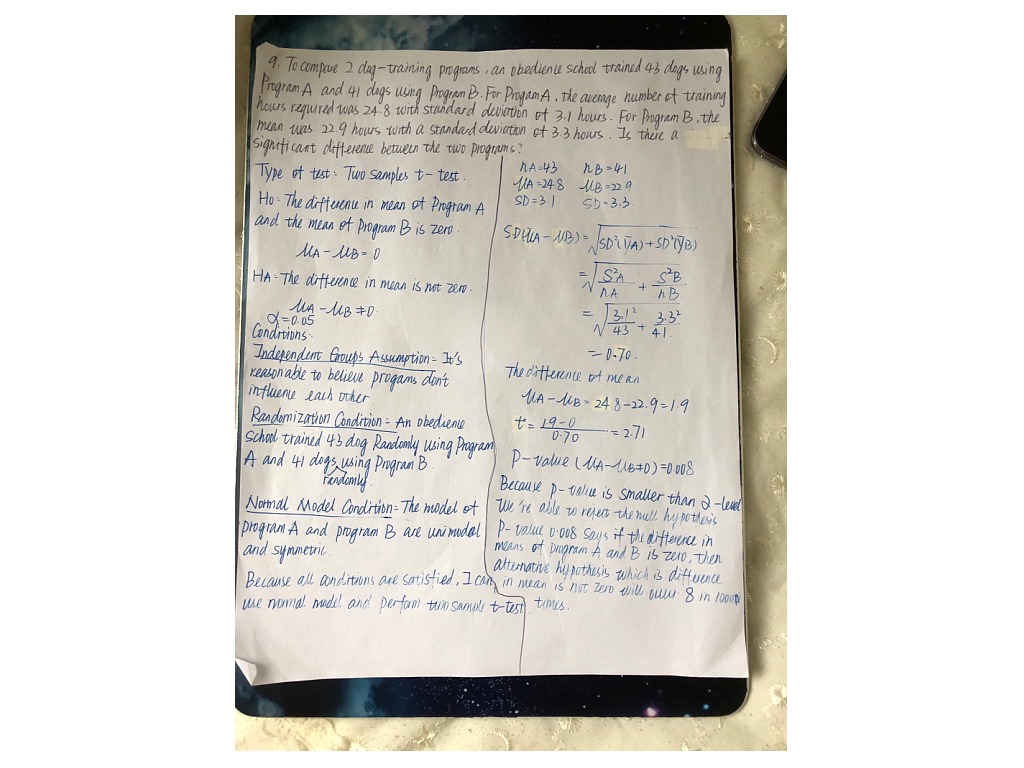 9. To compare 2 dog-training programs, an obedience school trained 43 dogs using
Program A and 41 dogs using Program B. For Progam A, the average number of training
hours required was 24.8 with standard deviation of 3.1 hours. For Program B, the
mean was 22.9 hours with a standard deviation of 3.3 hours. Is there a
significant difference between the two programs?
Type of test: Two samples t-test.
Ho: The difference in mean of Program A
and the mean of Program B is zero.
μA - μB = 0
HA: The difference in mean is not zero.
μA - μB ≠ 0
α=0.05
Conditions:
Independent Groups Assumption: It's
reasonable to believe progams don't
influence each other
Randomization Condition: An obedience
school trained 43 dog Randomly using Program
A and 41 dogs using Program B.
randomly.
Normal Model Condition: The model of
program A and program B are unimodal
and symmetric.
Because all conditions are satisfied, I can
use normal model and perform two sample t-test.
nA=43 nB=41
μA=24.8 μB=22.9
SD=3.1 SD=3.3.
SD(μA - μB) = √SD²(ȳA)+SD²(ȳB)
= √S²A/nA + S²B/nB
= √3.1²/43 + 3.3²/41
= 0.70.
The difference of mean
μA - μB = 24.8-22.9=1.9
t = 1.9-0/0.70 = 2.71
P-value (μA-μB≠0)=0.008
Because p-value is smaller than α-level
We're able to reject the null hypothesis
P-value 0.008 says if the difference in
means of program A and B is zero, then
alternative hypothesis which is difference
in mean is not zero will occur 8 in 1000
times.